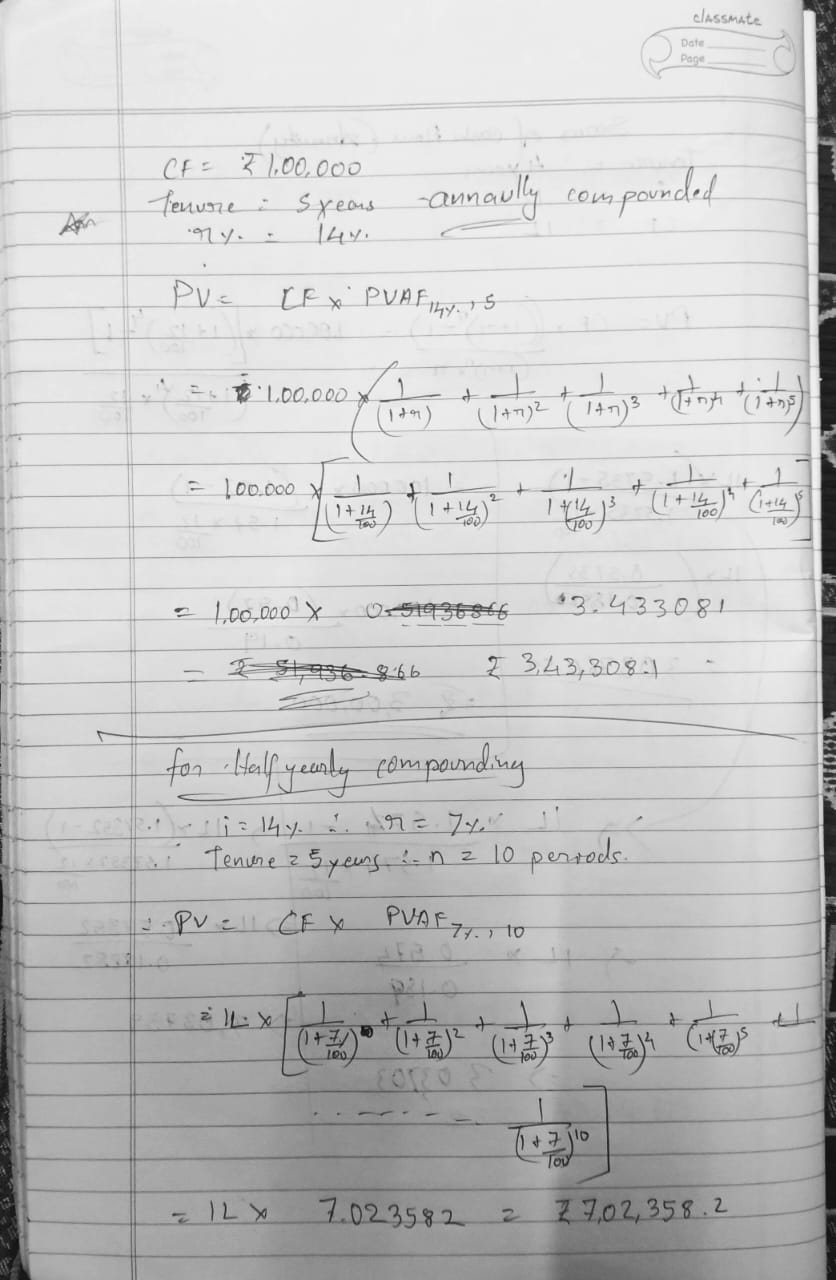 classmate
Date
Page
CF = ₹ 1,00,000
Tenure = 5 years - annaully compounded
r % = 14%
PV = CF × PVAF 14%, 5
= 1,00,000 × ( 1/(1+r) + 1/(1+r)² + 1/(1+r)³ + 1/(1+r)⁴ + 1/(1+r)⁵ )
= 100.000 × [ 1/(1+14/100) + 1/(1+14/100)² + 1/(1+14/100)³ + 1/(1+14/100)⁴ + 1/(1+14/100)⁵ ]
= 1,00,000 × 0.51936866 3.433081
= ₹ 51,936.866 ₹ 3,43,308.1
for Half yearly compounding
i = 14% ∴ r = 7%
Tenure = 5 years ∴ n = 10 periods.
∴ PV = CF × PVAF 7%, 10
= 1L × [ 1/(1+7/100) + 1/(1+7/100)² + 1/(1+7/100)³ + 1/(1+7/100)⁴ + 1/(1+7/100)⁵ + 1
. . . . - - - - - 1/(1+7/100)¹⁰ ]
= 1L × 7.023582 = ₹ 7,02,358.2